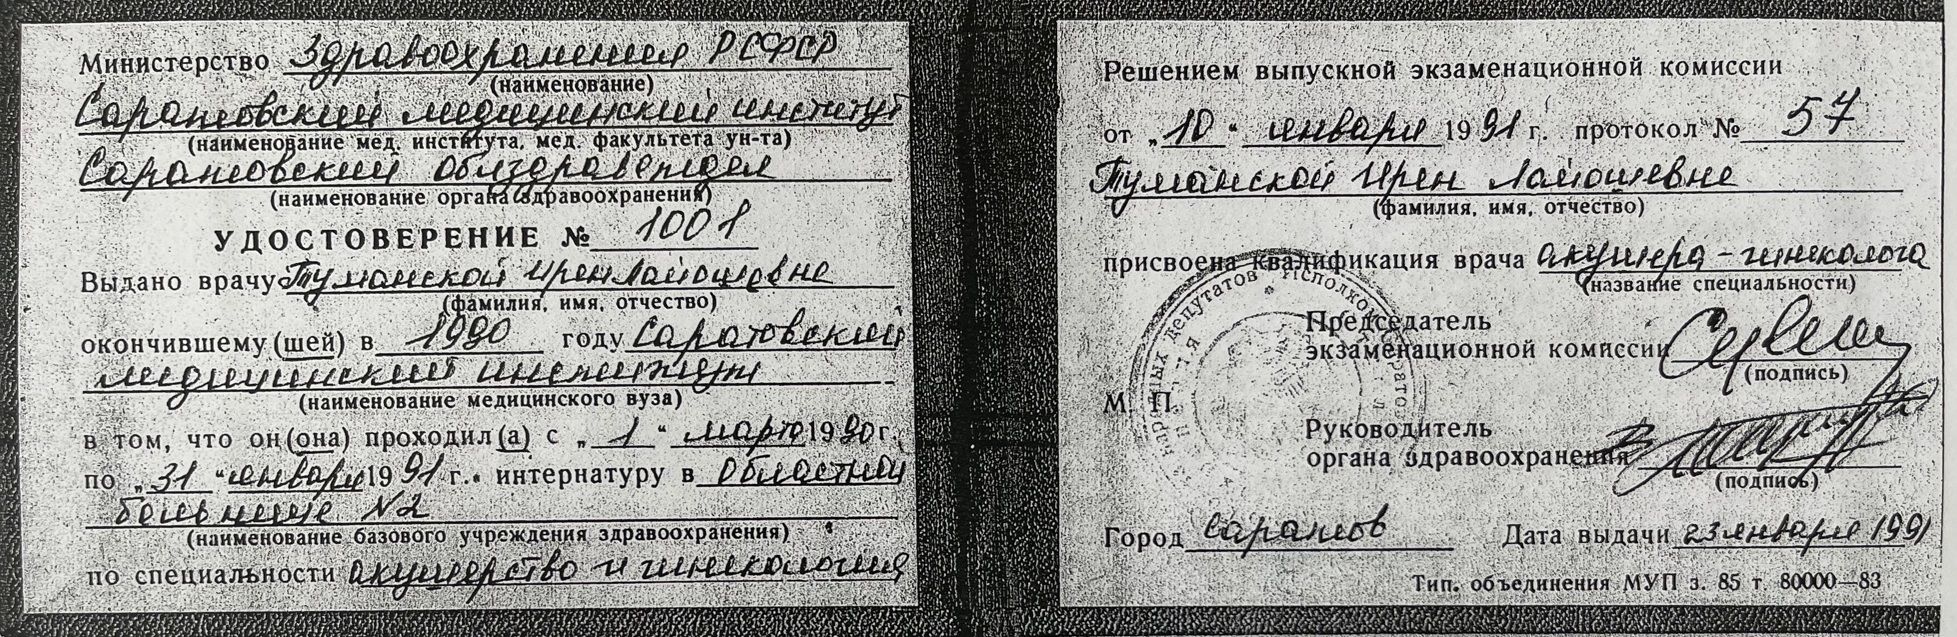 Министерство Здравоохранения РСФСР
(наименование)
Саратовский медицинский институт
(наименование мед. института, мед. факультета ун-та)
Саратовский облздравотдел
(наименование органа здравоохранения)
УДОСТОВЕРЕНИЕ № 1001
Выдано врачу Туманской Ирен Лайошевне
(фамилия, имя, отчество)
окончившему (шей) в 1990 году Саратовский
медицинский институт
(наименование медицинского вуза)
в том, что он (она) проходил (а) с „1“ марта 1990 г.
по „31“ января 1991 г. интернатуру в Областной
больнице №2
(наименование базового учреждения здравоохранения)
по специальности акушерство и гинекология
Решением выпускной экзаменационной комиссии
от „10“ января 1991 г. протокол № 57
Туманской Ирен Лайошевне
(фамилия, имя, отчество)
присвоена квалификация врача акушера-гинеколога
(название специальности)
Председатель
экзаменационной комиссии
(подпись)
М. П.
Руководитель
органа здравоохранения
(подпись)
Город Саратов Дата выдачи 23 января 1991
Тип. объединения МУП з. 85 т. 80000—83
депутатов Исполком